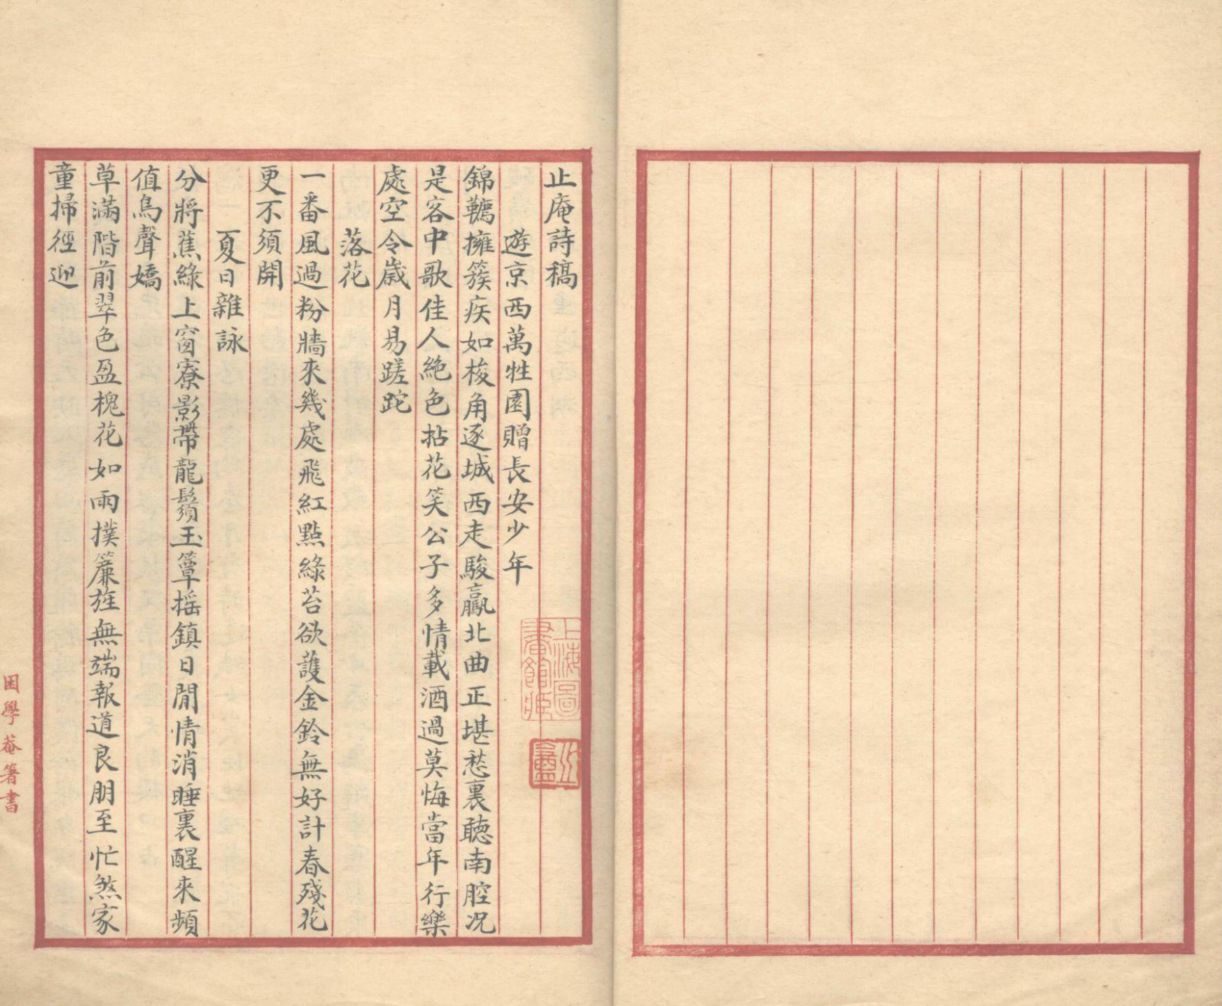 止庵詩稿
遊京西萬牲園贈長安少年
錦韉擁簇疾如梭角逐城西走駿驘北曲正堪愁裏聽南腔况
是客中歌佳人絶色拈花笑公子多情載酒過莫悔當年行樂
處空令歲月易蹉跎
落花
一番風過粉牆來幾處飛紅點綠苔欲護金鈴無好計春殘花
更不須開
夏日雜詠
分將蕉綠上窗寮影帶龍鬚玉簟摇鎮日閒情消睡裏醒來頻
值鳥聲嬌
草滿階前翠色盈槐花如雨撲簾旌無端報道良朋至忙煞家
童掃徑迎
上海圖
書館藏
止盦
困學菴箸書